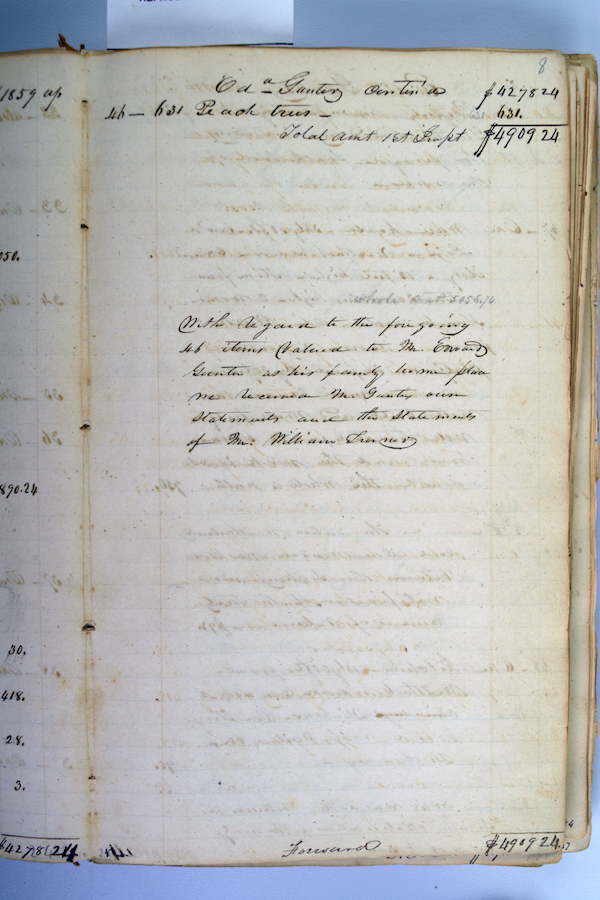 8
Ed a Gunter Contin d $4278 24
46 — 631 Peach trees — 631.
Total Amt 1st Impt $4909 24
whole
With regard to the foregoing
46 items Valued to Mr Edward
Gunter as his family home place
we received Mr Gunters own
Statements and the Statements
of Mr. William
Forward $4909 24
1859 up
050.
890.24
30.
418.
28.
3.
$4278 24